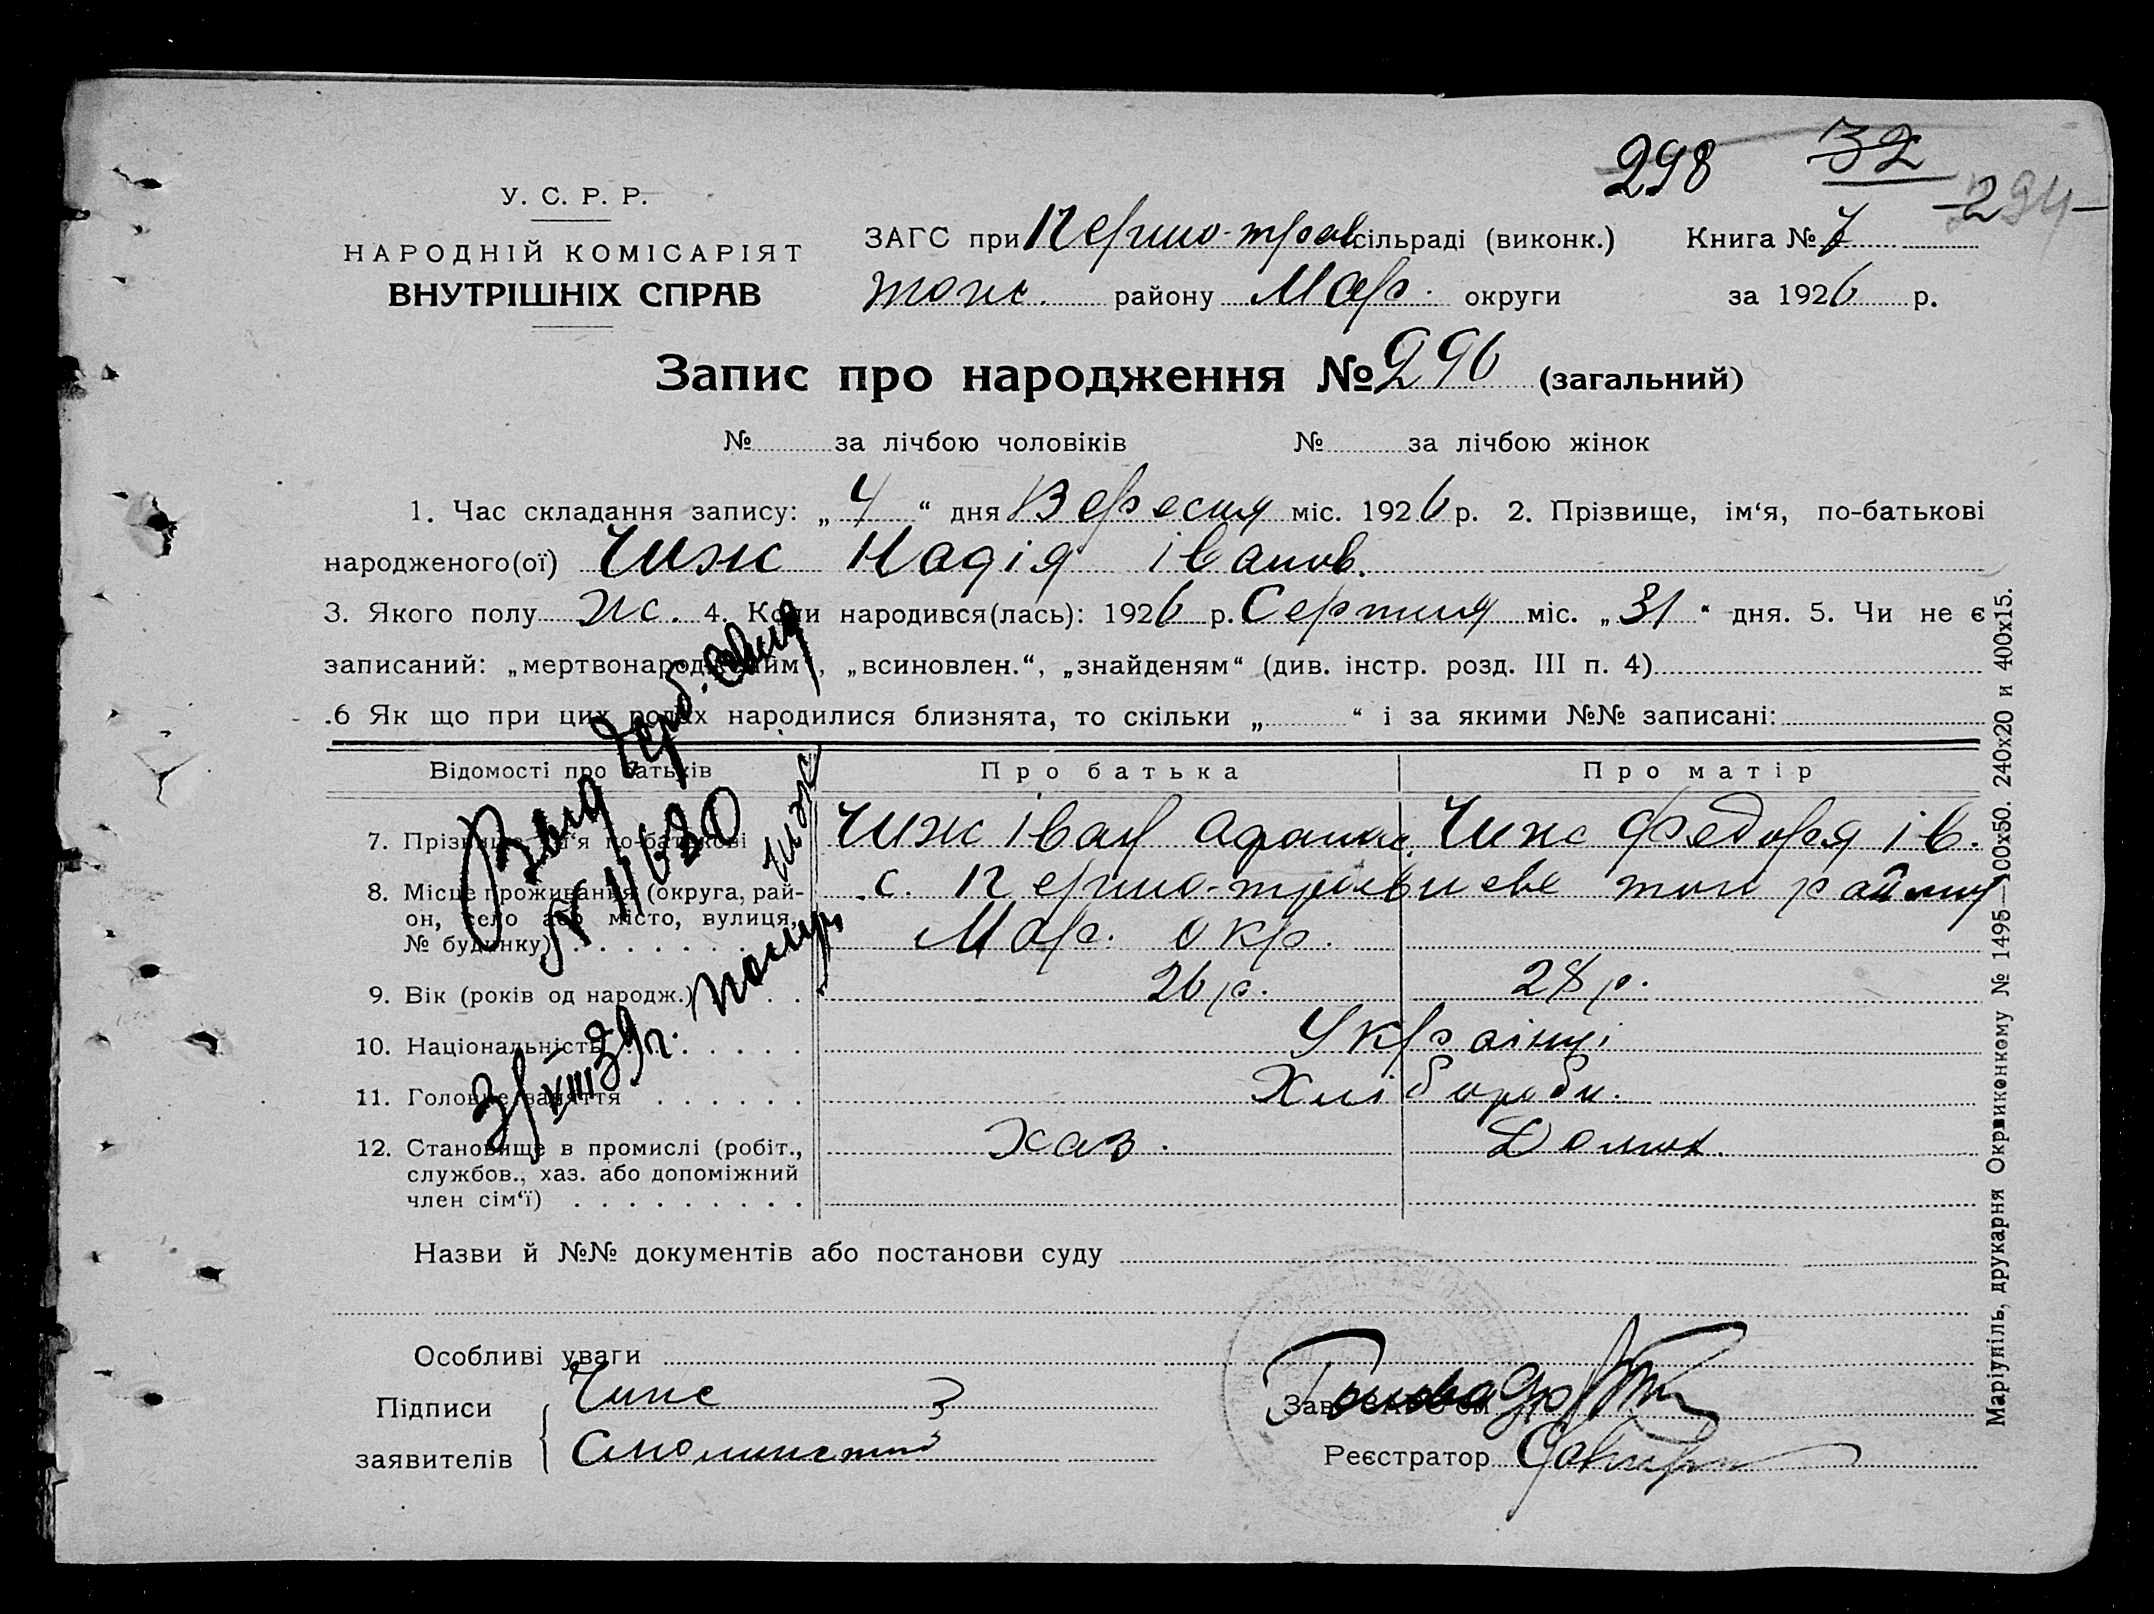 298 32
294
У. С. Р. Р.
НАРОДНІЙ КОМІСАРІЯТ
ВНУТРІШНІХ СПРАВ
ЗАГС при Першо-трав сільраді (виконк.) Книга № 7
району Мар. округи за 1926 р.
Запис про народження № 296 (загальний)
№ за лічбою чоловіків № за лічбою жінок
1. Час складання запису: „4“ дня Вересня міс. 1926 р. 2. Прізвище, ім‘я, по-батькові
народженого(ої) Чиж Надія Іванов.
3. Якого полу ж. 4. Коли народився(лась): 1926 р. Серпня міс. „31“ дня. 5. Чи не є
записаний: „мертвонародженим“, „всиновлен.“, „знайденям“ (див. інстр. розд. III п. 4)
.6 Як що при цих родах народилися близнята, то скільки „ “ і за якими №№ записані:
Відомості про батьків Про батька Про матір
7. Прізвище, ім‘я по-батькові Чиж Іван Чиж Федора Ів.
8. Місце проживання (округа, рай- с. Першо-травневе району
он, село або місто, вулиця, Мар. окр.
№ будинку)
9. Вік (років од народж.) 26 р. 28 р.
10. Національність Українці
11. Головне заняття Хлібороби.
12. Становище в промислі (робіт., хаз. Допом.
службов., хаз. або допоміжний
член сім‘ї)
№ 11630
Чиж
Назви й №№ документів або постанови суду
Особливі уваги
Підписи Чиж
заявителів
Голова
Реєстратор
Маріупіль, друкарня Окрвиконкому № 1495—100х50. 240х20 и 400х15.